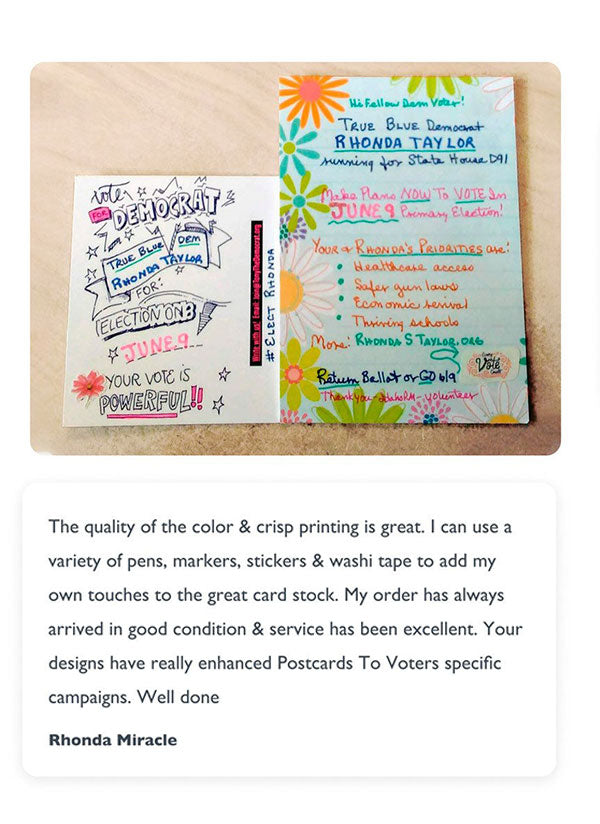 vote
FOR DEMOCRAT
TRUE BLUE DEM
RHONDA TAYLOR
FOR:
ELECTION ON
JUNE 9
YOUR VOTE IS
POWERFUL!!
Write with us! Email: Join@TonyTheDemocrat.org
#ELECT RHONDA
Hi Fellow Dem Voter!
TRUE BLUE Democrat
RHONDA TAYLOR
running for State House D91
Make Plans NOW TO VOTE In
JUNE 9 Primary Election!
Your & RHONDA'S PRIORITIES are:
Healthcare access
Safer gun laws
Economic revival
Thriving schools
More: RHONDA S TAYLOR.ORG
Vote
Return Ballot or GO 6/9
Thank you - IdahoRM - volunteer
The quality of the color & crisp printing is great. I can use a
variety of pens, markers, stickers & washi tape to add my
own touches to the great card stock. My order has always
arrived in good condition & service has been excellent. Your
designs have really enhanced Postcards To Voters specific
campaigns. Well done
Rhonda Miracle